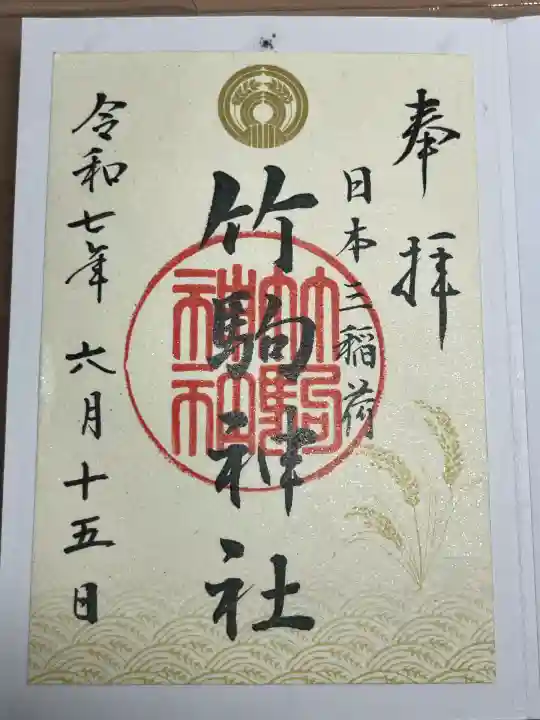 奉拝
日本三稲荷
竹駒神社
竹駒
神社
令和七年 六月十五日